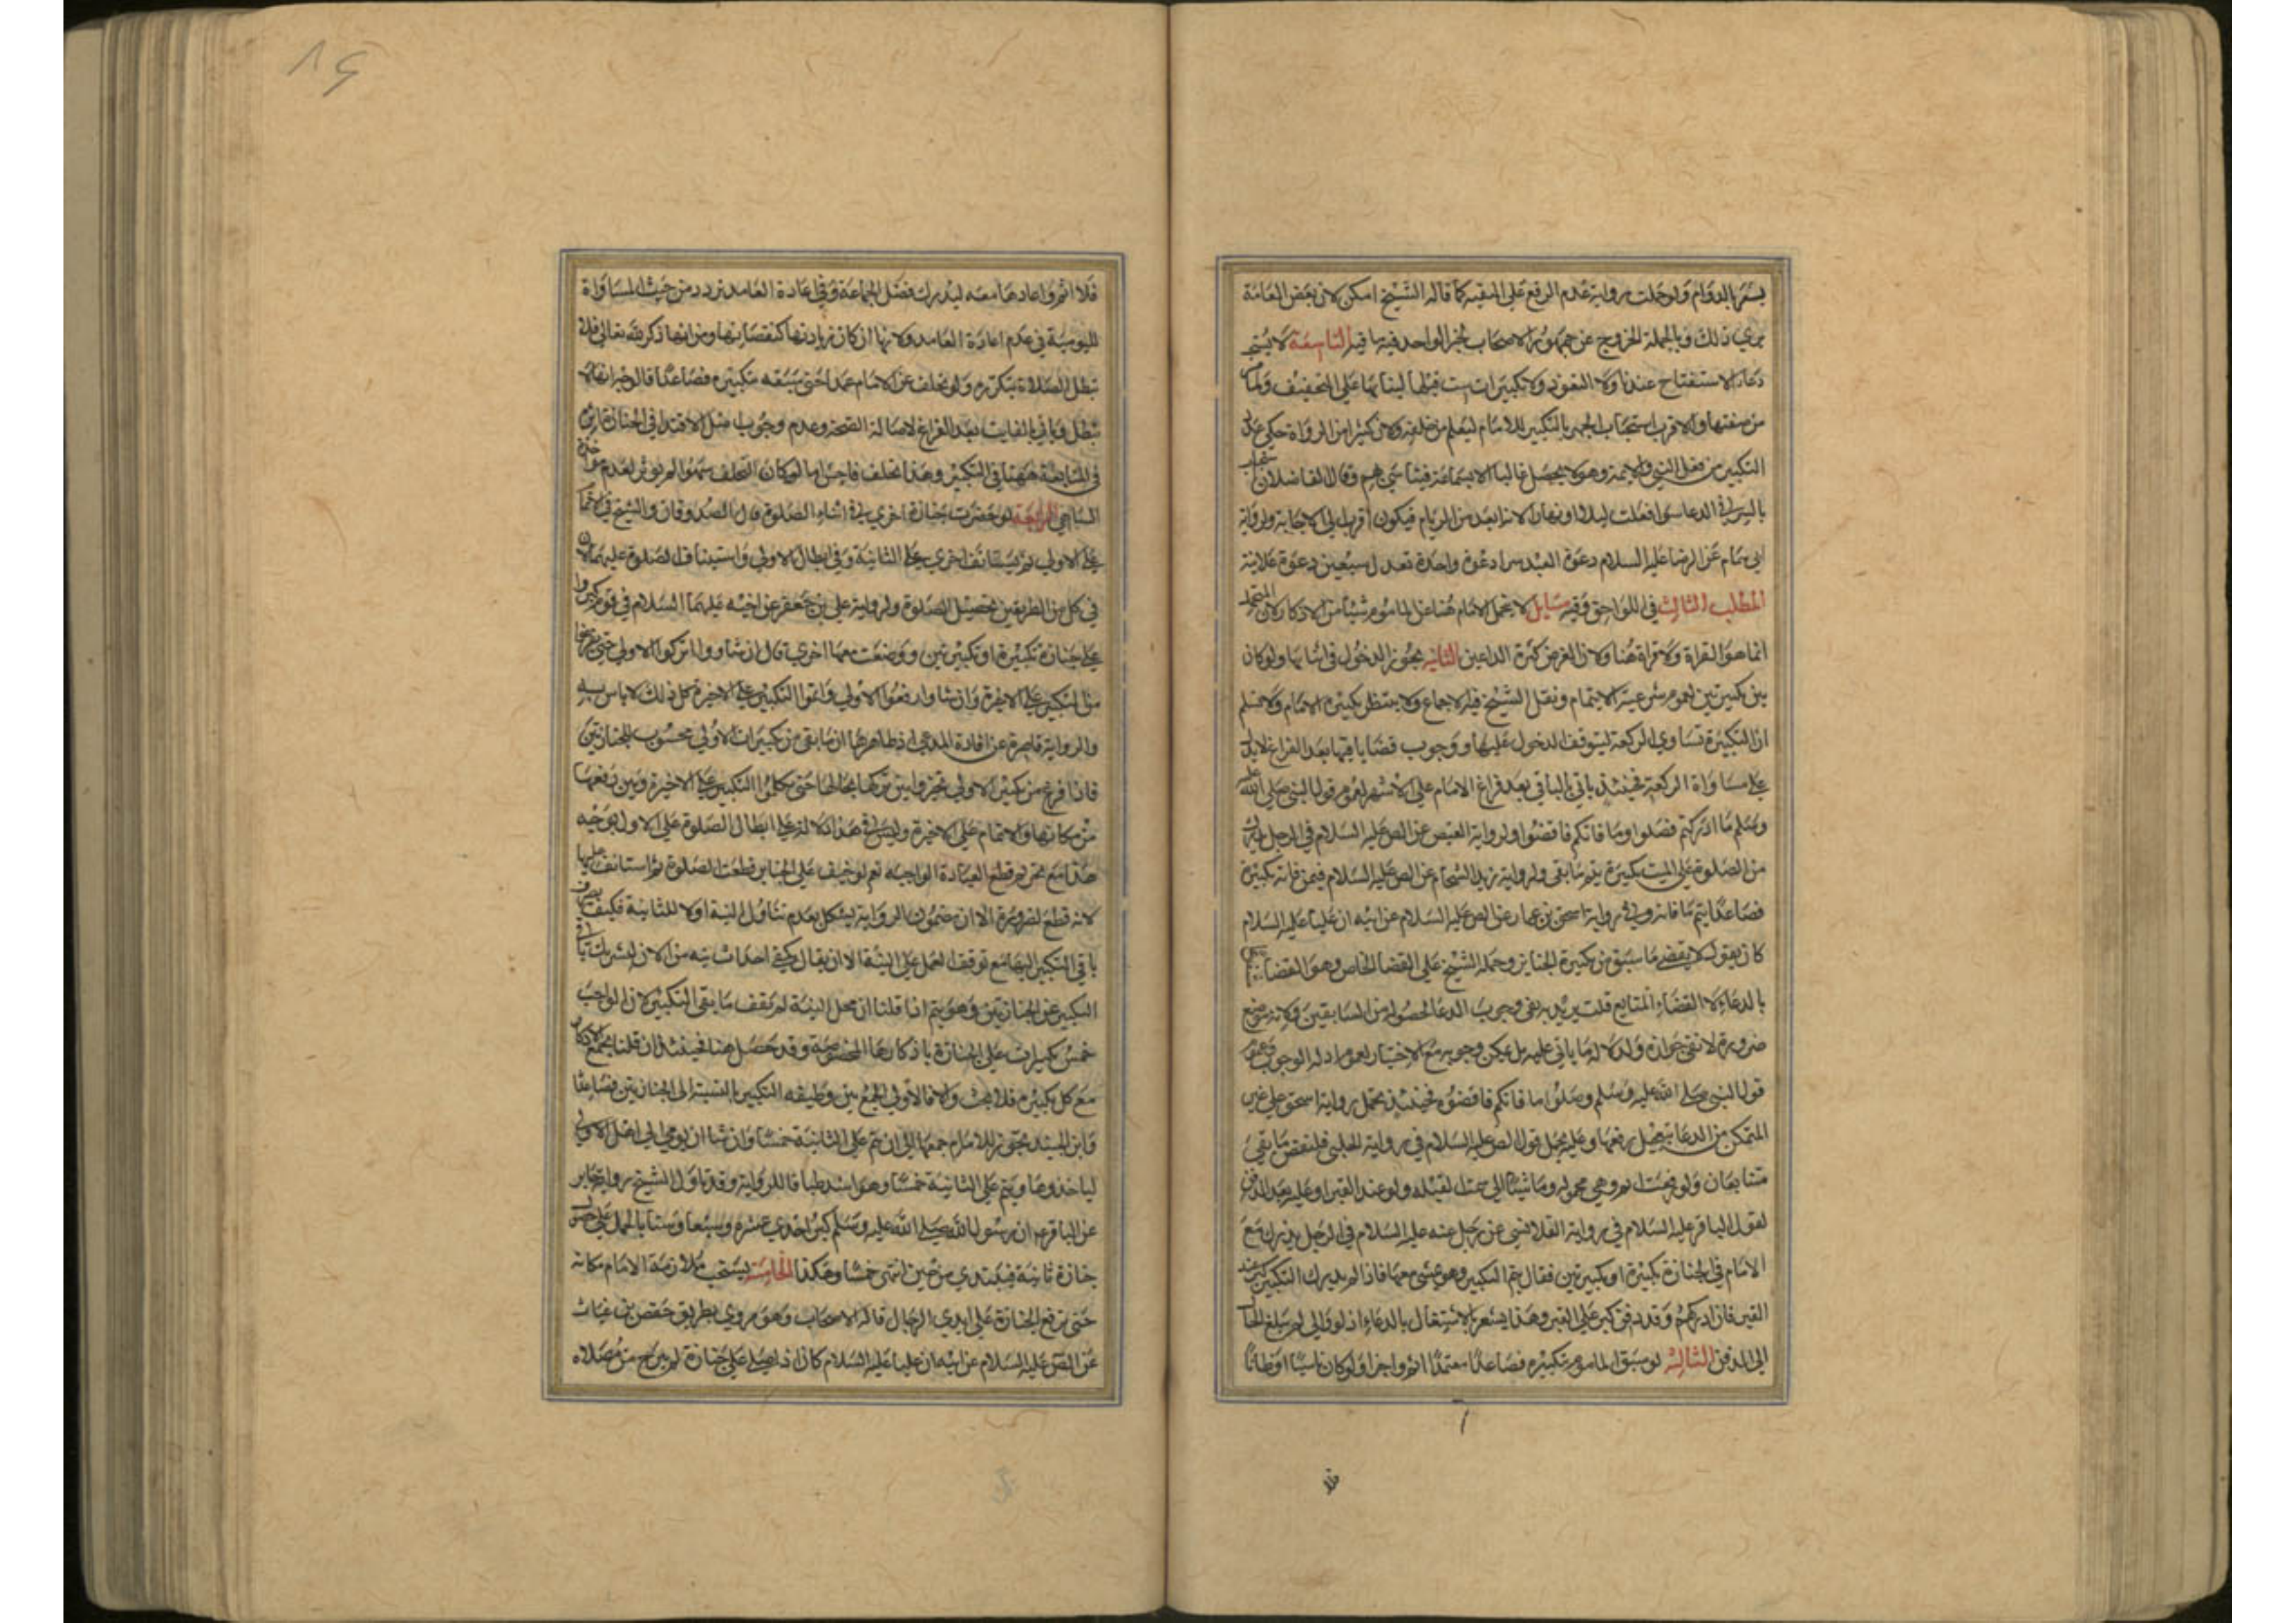 يشعر بالدوام ولو حملت رواية عدم الرفع على التقية كما قاله الشيخ امكن لان بعض العامة
يرى ذلك وبالجملة الخروج عن جمهور الاصحاب بخبر الواحد فيه ما فيه التاسعة لا يستحب
دعاء الاستفتاح عندنا ولا التعوذ ولا تكبيرات ست قبلها لبنائها على التخفيف ولما مر
من صفتها والاقرب استحباب الجهر بالتكبير للامام ليعلم من خلفه ولان كثيرا من الرواة حكى عدد
التكبير من فعل النبي والائمة وهو لا يحصل غالبا الا بسماعه وقال الفاضلان
بالسر في الدعاء سواء فعلت ليلا او نهارا لانه ابعد من الرياء فيكون اقرب الى الاجابة ولرواية
ابي همام عن الرضا عليه السلام دعوة العبد سرا دعوة واحدة تعدل سبعين دعوة علانية
المطلب الثالث في اللواحق وفيه مسايل لا يتحمل الامام هنا عن الماموم شيئا من الاذكار لان المتحمل
انما هو القراة ولا قراة هنا ولان الغرض كثرة الداعين الثانية يجوز الدخول في اثنائها ولو كان
بين تكبيرتين لعموم شرعية الايتمام ونقل الشيخ فيه الاجماع ولا ينتظر تكبيرة الامام ولا نسلم
ان التكبيرة تساوي الركعة ليتوقف الدخول عليها ووجوب قضاء باقيها بعد الفراغ لا يدل
على مساواة الركعة فحينئذ ياتي بالباقي بعد فراغ الامام على الاشهر لعموم قول النبي صلى الله عليه
وسلم ما ادركتم فصلوا وما فاتكم فاقضوا ولرواية العيص عن الص عليه السلام في الرجل يدرك
من الصلوة على الميت تكبيرة يتم ما بقي ولرواية زيد الشحام عن الص عليه السلام فيمن فاته تكبيرة
فصاعدا يتم ما فاته وفي رواية اسحق بن عمار عن الص عليه السلام عن ابيه ان عليا عليه السلام
كان يقول لا يقضى ما سبق من تكبيرة الجنايز وحمله الشيخ على القضا الخاص وهو القضاء
بالدعاء لا القضاء المتتابع قلت يريد به نفي وجوب الدعا لحصوله من السابقين ولانه موضع
ضرورة لا نفي جوازه ولدلالة ما ياتي عليه بل يمكن وجوبه مع الاختيار لعموم ادلة الوجوب وعموم
قول النبي صلى الله عليه وسلم وصلوا ما فاتكم فاقضوه فحينئذ تحمل رواية اسحق على غير
المتمكن من الدعا بتعجيل رفعها وعليه يحمل قول الص عليه السلام في رواية الحلبي فليقض ما بقي
متتابعا ولو رفعت اتم وهي محمولة وماشيا الى سمت القبلة ولو عند القبر او عليه بعد الدفن
لقول الباقر عليه السلام في رواية القلانسي عن رجل عنه عليه السلام في الرجل يدرك مع
الامام في الجنازة تكبيرة او تكبيرتين فقال يتم التكبير وهو يمشي معها فاذا لم يدرك التكبير كبر عند
القبر فان ادركهم وقد دفن كبر على القبر وهذا يشعر بالاشتغال بالدعاء اذ لو والى لم يبلغ الحال
الى الدفن الثالثة لو سبق الماموم بتكبيرة فصاعدا متعمدا اثم واجزا ولو كان ناسيا او ظانا
فلا اثم واعادها معه ليدرك فضل الجماعة وفي اعادة العامد تردد من حيث المساواة
لليومية في عدم اعادة العامد ولانها اركان زيادتها كنقصانها ومن انها ذكر الله تعالى فلا
تبطل الصلاة بتكرره ولو تخلف عن الامام عمدا حتى سبقه بتكبيرة فصاعدا فالوجه انها لا
تبطل وياتي بالفايت بعد الفراغ لاصالة الصحة وعدم وجوب مثل الاقتدا في
في المتابعة ههنا في التكبير وهذا تخلف فاحش اما لو كان التخلف سهوا لم يوثر لعدم مواخذة
الساهي الرابعة لو حضرت جنازة اخرى في اثناء الصلوة قال الصدوقان والشيخ
على الاولى ثم يستانف اخرى على الثانية وفي ابطال الاولى واستيناف الصلوة عليهما لان
في كل من الطريقين تحصيل الصلوة ولرواية علي بن جعفر عن اخيه عليهما السلام في قوم كبروا
على جنازة تكبيرة او تكبيرتين ووضعت معها اخرى قال ان شاووا تركوا الاولى حتى يفرغوا
من التكبير على الاخيرة وان شاوا رفعوا الاولى واتموا التكبير على الاخيرة كل ذلك لا باس به
والرواية قاصرة عن افادة المدعى اذ ظاهرها ان ما بقي من تكبيرات الاولى محسوب للجنازتين
فاذا فرغ من تكبير الاولى تخيروا بين تركها بحالها حتى يكملوا التكبير على الاخيرة وبين رفعها
من مكانها والاتمام على الاخيرة وليس في هذا دلالة على ابطال الصلوة على الاولى بوجه
هذا مع تحريم قطع العبادة الواجبة نعم لو خيف على الجنايز قطعت الصلوة ثم استانف عليها
لانه قطع لضرورة الا ان مضمون الرواية يشكل بعدم تناول النية اولا للثانية فكيف يصرف
باقي التكبير اليها مع توقف العمل على النية الا ان يقال يكفي احداث نية من الان لتشريك باقي
التكبير عن الجنازتين وهو يتم اذا قلنا ان محل النية لم يقف ما بقي التكبير لان الواجب
خمس تكبيرات على الجنازة باذكارها المخصوصة وقد حصل هنا فحينئذ ان قلنا بجمع الاذكار
مع كل تكبيرة فلا بحث والا فالاولى الجمع بين وظيفة التكبير بالنسبة الى الجنازتين فصاعدا
وابن الجنيد يجوز للامام جمعهما الى ان يتم على الثانية خمسا وان شا ان يومي الى اهل الاولى
لياخذوها ويتم على الثانية خمسا وهو اشد طباقا للرواية وقد تاول الشيخ رواية جابر
عن الباقر ع ان رسول الله صلى الله عليه وسلم كبر احدى عشرة وسبعا وستا بالحمل على حضور
جنازة ثانية فيبتدي من حين انتهى خمسا وهكذا الخامسة يستحب ملازمة الامام مكانه
حتى ترفع الجنازة على ايدي الرجال قاله الاصحاب وهو مروي بطريق حفص بن غياث
عن الص عليه السلام عن ابيه ان عليا عليه السلام كان اذا صلى على جنازة لم يبرح من مصلاه